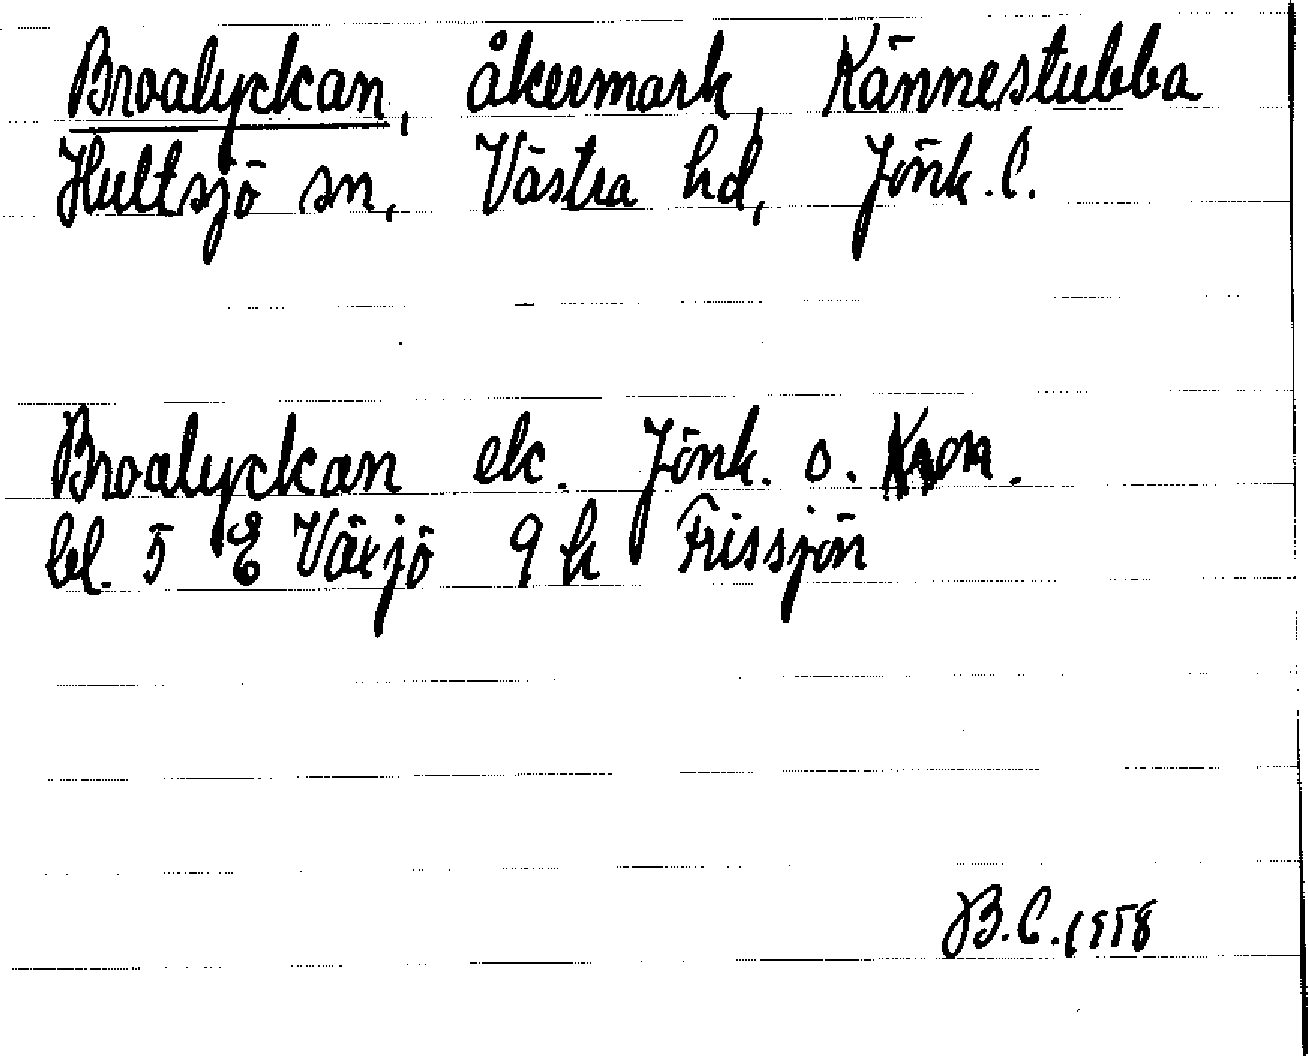 Broalyckan, åkermark, Kännestubba
Hultsjö sn, Västra hd, Jönk. l.
Broalyckan ek. Jönk. o. Kron.
bl. 5 E Växjö 9 h Frissjön
B.C. 1958